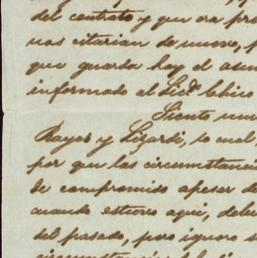 del contrato y que era pro
nos citarian de nuevo, p
que guarda hoy el asun
informado al Licd.º Chico
Siento mu
Rayas y Lizardi, lo cual,
por que las circunstanci
de compromiso apesar d
cuando estuvo aqui, debe
del pasado, pero ignoro s